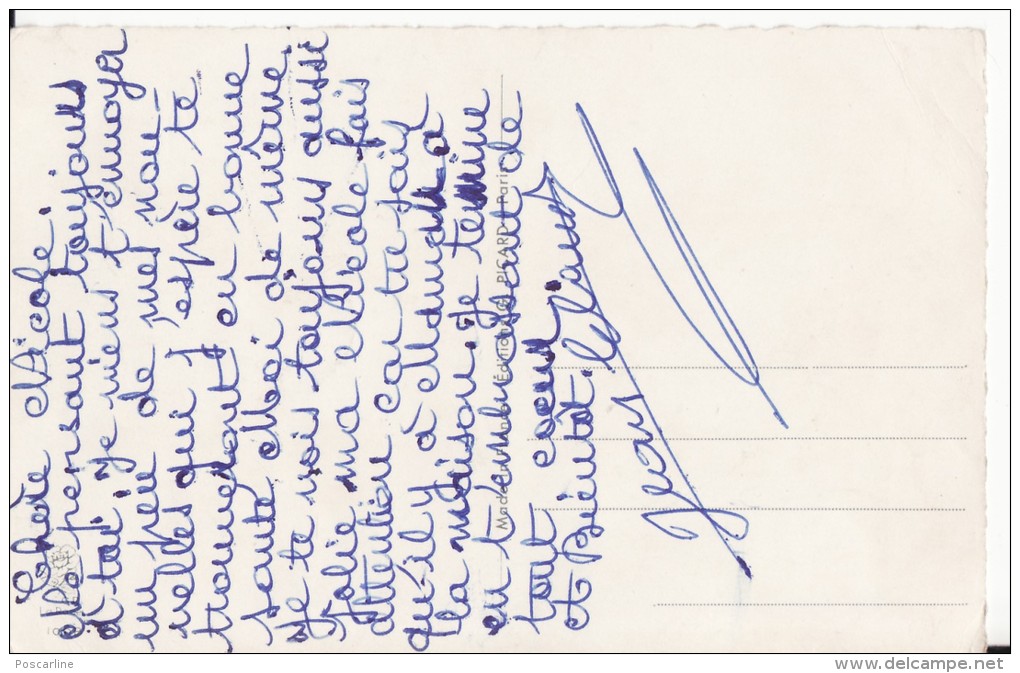 Chère Nicole.
Ne pensant toujours
à toi, je viens t'envoyer
un peu de mes nou-
velles qui j'espère te
trouveront en bonne
santé. Moi de même.
Je te vois toujours aussi
jolie, ma Nicole fais
attention car tu sais
qu'il y à Mamach à
la maison. Je termine
en t'embrassant de
tout coeur
et Bientôt.
Jean Claude
Made in France Éditions G. PICARD - Paris
Poscarline
www.delcampe.net